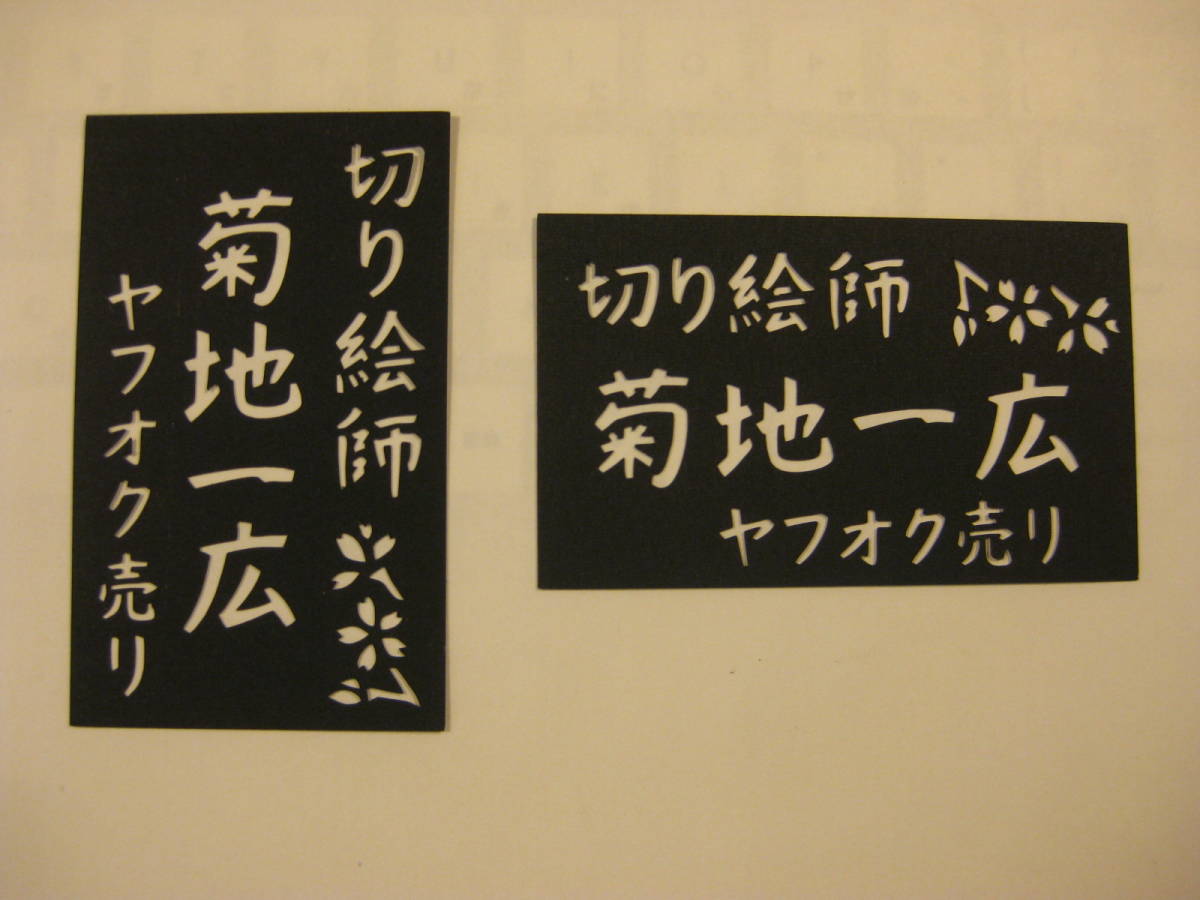 切り絵師
菊地一広
ヤフオク売り
切り絵師
菊地一広
ヤフオク売り